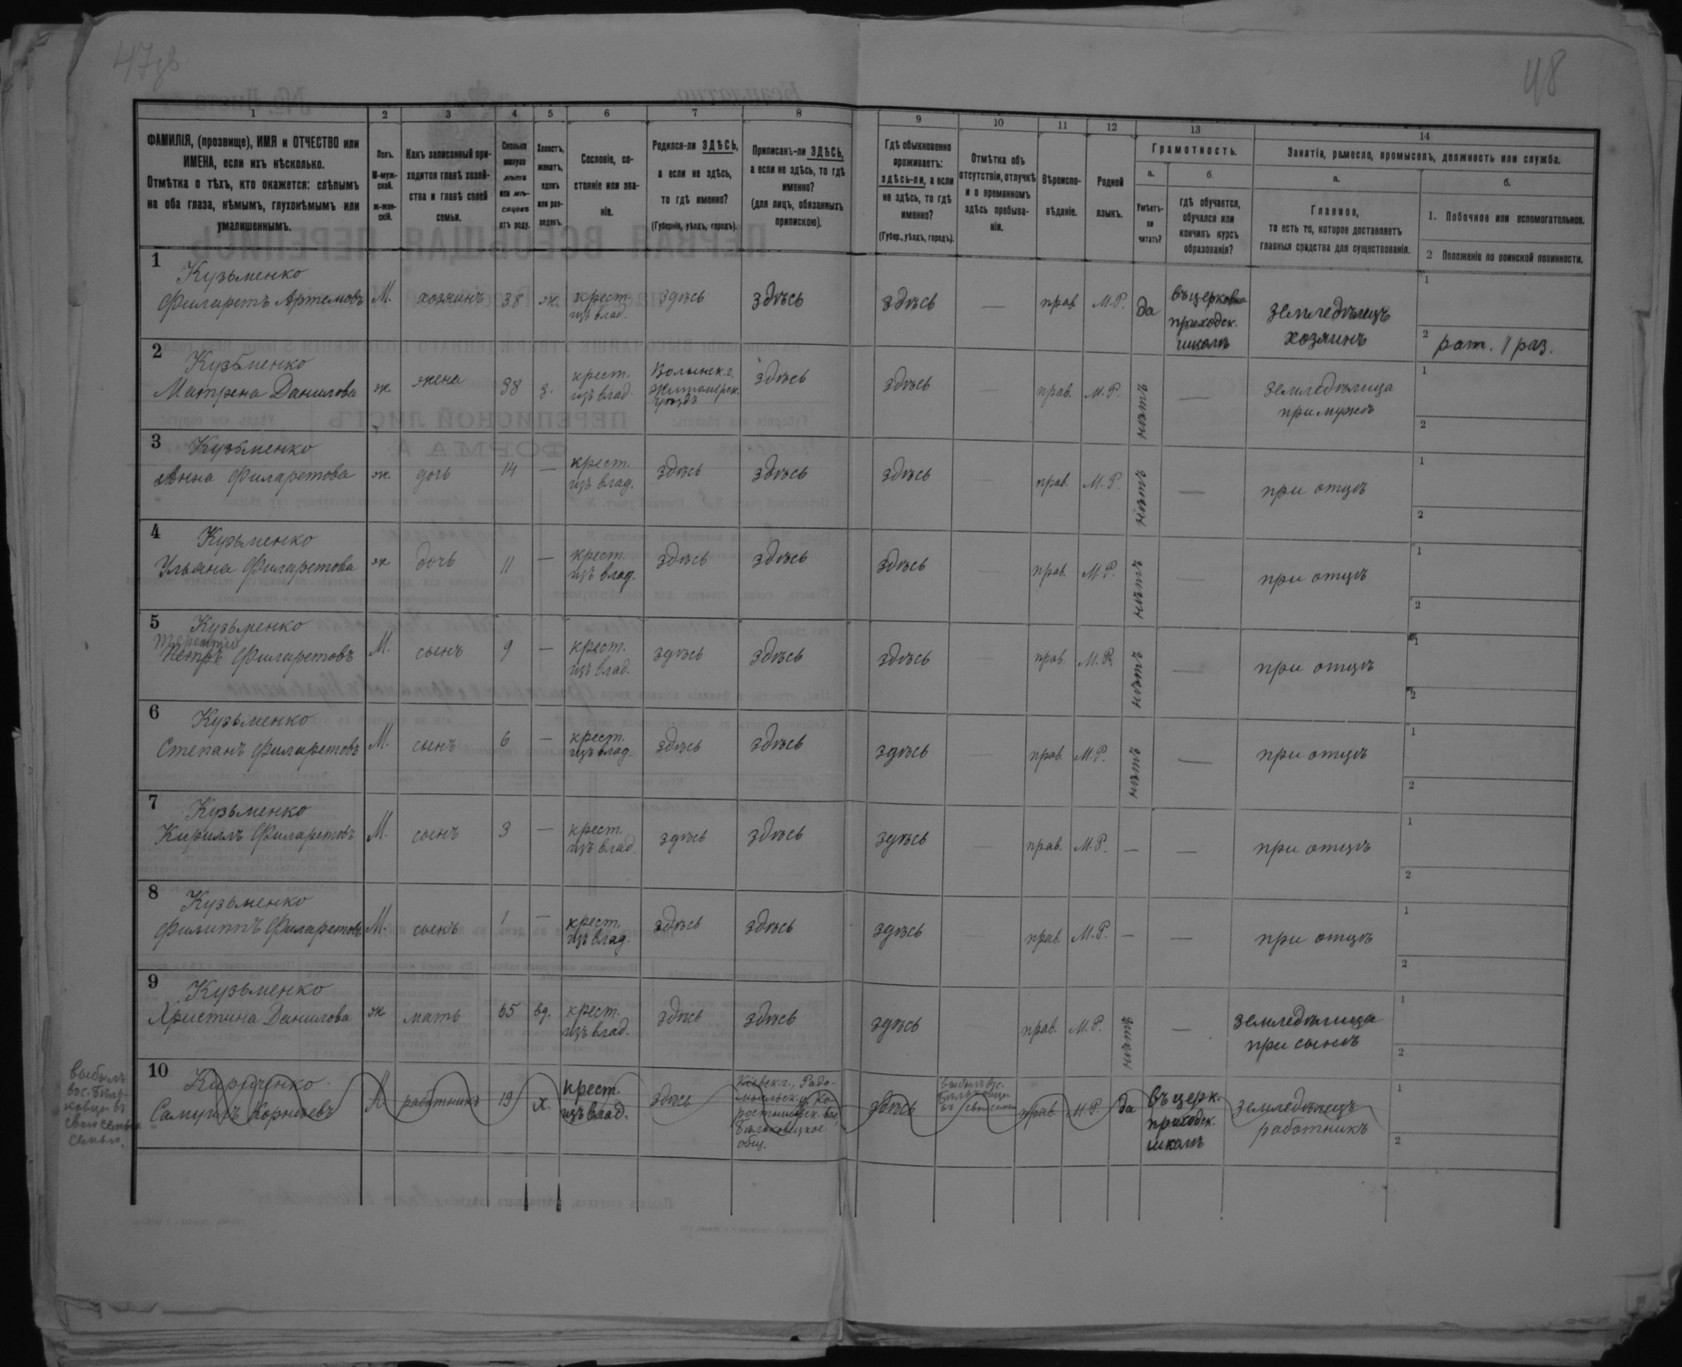 47об
48
1
2
3
4
5
6
7
8
9
10
11
12
13
14
ФАМИЛІЯ, (прозвище), ИМЯ и ОТЧЕСТВО или
ИМЕНА, если ихъ нѣсколько.
Отмѣтка о тѣхъ, кто окажется: слѣпымъ
на оба глаза, нѣмымъ, глухонѣмымъ или
умалишеннымъ.
Полъ.
М-муж-
ской.
ж-жен-
скій.
Какъ записанный при-
ходится главѣ хозяй-
ства и главѣ своей
семьи.
Сколько
минуло
лѣтъ
или мѣ-
сяцевъ
отъ роду.
Холостъ,
женатъ,
вдовъ
или раз-
веденъ.
Сословіе, со-
стояніе или зва-
ніе.
Родился-ли ЗДѢСЬ,
а если не здѣсь,
то гдѣ именно?
(Губернія, уѣздъ, городъ).
Приписанъ-ли ЗДѢСЬ,
а если не здѣсь, то гдѣ
именно?
(для лицъ, обязанныхъ
припискою).
Гдѣ обыкновенно
проживаетъ:
здѣсь-ли, а если
не здѣсь, то гдѣ
именно?
(Губер., уѣздъ, городъ).
Отмѣтка объ
отсутствіи, отлучкѣ
и о временномъ
здѣсь пребыва-
ніи.
Вѣроиспо-
вѣданіе.
Родной
языкъ.
Грамотность.
а.
Умѣетъ-
ли
читать?
б.
гдѣ обучается,
обучался или
кончилъ курсъ
образованія?
Занятіе, ремесло, промыселъ, должность или служба.
а.
Главное,
то есть то, которое доставляетъ
главныя средства для существованія.
б.
1. Побочное или вспомогательное.
2 Положеніе по воинской повинности.
1 Кузьменко
Филаретъ Артемовъ М. хозяинъ 38 ж. крест. изъ влад. здѣсь здѣсь здѣсь — прав. М.Р. да въ церковно приходск. школѣ земледѣлецъ хозяинъ 1
2 рат. 1 раз.
2 Кузьменко
Матрена Данилова ж жена 38 з. крест. изъ влад. Волынск. г. Житомирск. уѣзда здѣсь здѣсь прав. М.Р. нѣтъ — земледѣлица при мужѣ 1
2
3 Кузьменко
Анна Филаретова ж дочь 14 — крест. изъ влад. здѣсь здѣсь здѣсь — прав. М.Р. нѣтъ — при отцѣ 1
2
4 Кузьменко
Ульяна Филаретова ж дочь 11 — крест. изъ влад. здѣсь здѣсь здѣсь — прав. М.Р. нѣтъ — при отцѣ 1
2
5 Кузьменко
Терентій
Петръ Филаретовъ М. сынъ 9 — крест. изъ влад. здѣсь здѣсь здѣсь — прав. М.Р. нѣтъ — при отцѣ 1
2
6 Кузьменко
Степанъ Филаретовъ М. сынъ 6 — крест. изъ влад. здѣсь здѣсь здѣсь — прав. М.Р. нѣтъ — при отцѣ 1
2
7 Кузьменко
Кириллъ Филаретовъ М. сынъ 3 — крест. изъ влад. здѣсь здѣсь здѣсь — прав. М.Р. — — при отцѣ 1
2
8 Кузьменко
Филиппъ Филаретовъ М. сынъ 1 — крест. изъ влад. здѣсь здѣсь здѣсь — прав. М.Р. — — при отцѣ 1
2
9 Кузьменко
Христина Данилова ж мать 65 вд. крест. изъ влад. здѣсь здѣсь здѣсь — прав. М.Р. нѣтъ — земледѣлица при сынѣ 1
2
10 Кириченко
Самуилъ Корніевъ М работникъ 19 х. крест. изъ влад. здѣсь Кіевск. г., Радо-
мысльск. у. Ко-
ростышевск. вол.,
общ. здѣсь прав. М.Р. да въ церк. приходск. школѣ земледѣлецъ работникъ 1
2
выбылъ